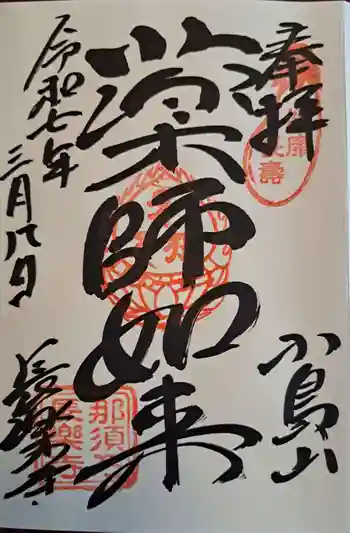 奉拝
小鳥山
薬師如来
令和七年
三月八日
長楽寺
那須
長樂寺